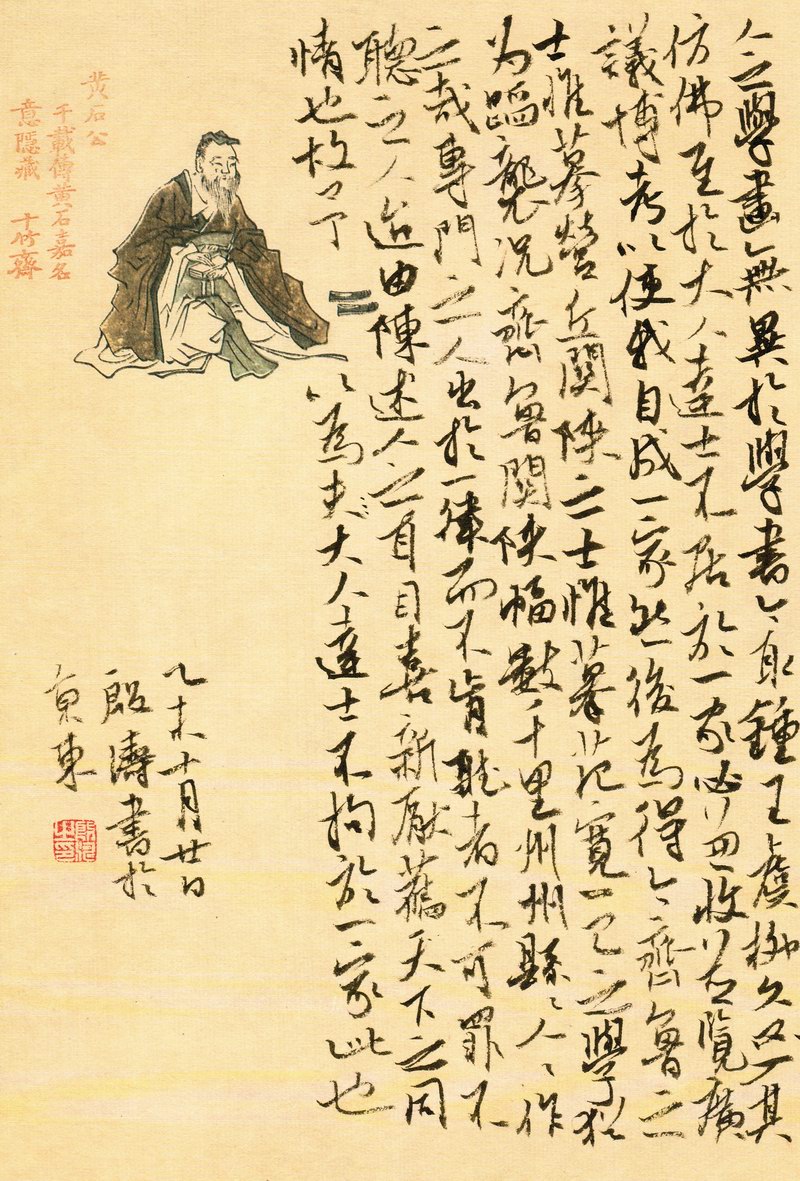 人之學畫無異於學書今取鍾王虞柳久必入其
仿佛至於大人達士不拘於一家必兼收並覽廣
議博考以使我自成一家然後為得今齊魯之
士惟摹營丘關陝之士惟摹范寬一己之學猶
为蹈襲況齊魯關陝幅數千里州州縣々人々作
之哉專門之人出於一律而不肯聽者不可罪不
聽之人迨由陳述人之耳目喜新厭舊天下之同
情也故予以為夫大人達士不拘於一家此也
乙未十月廿日
殷濤書於
京東
黄石公
千載傳黄石嘉名
意隱藏 十竹齋